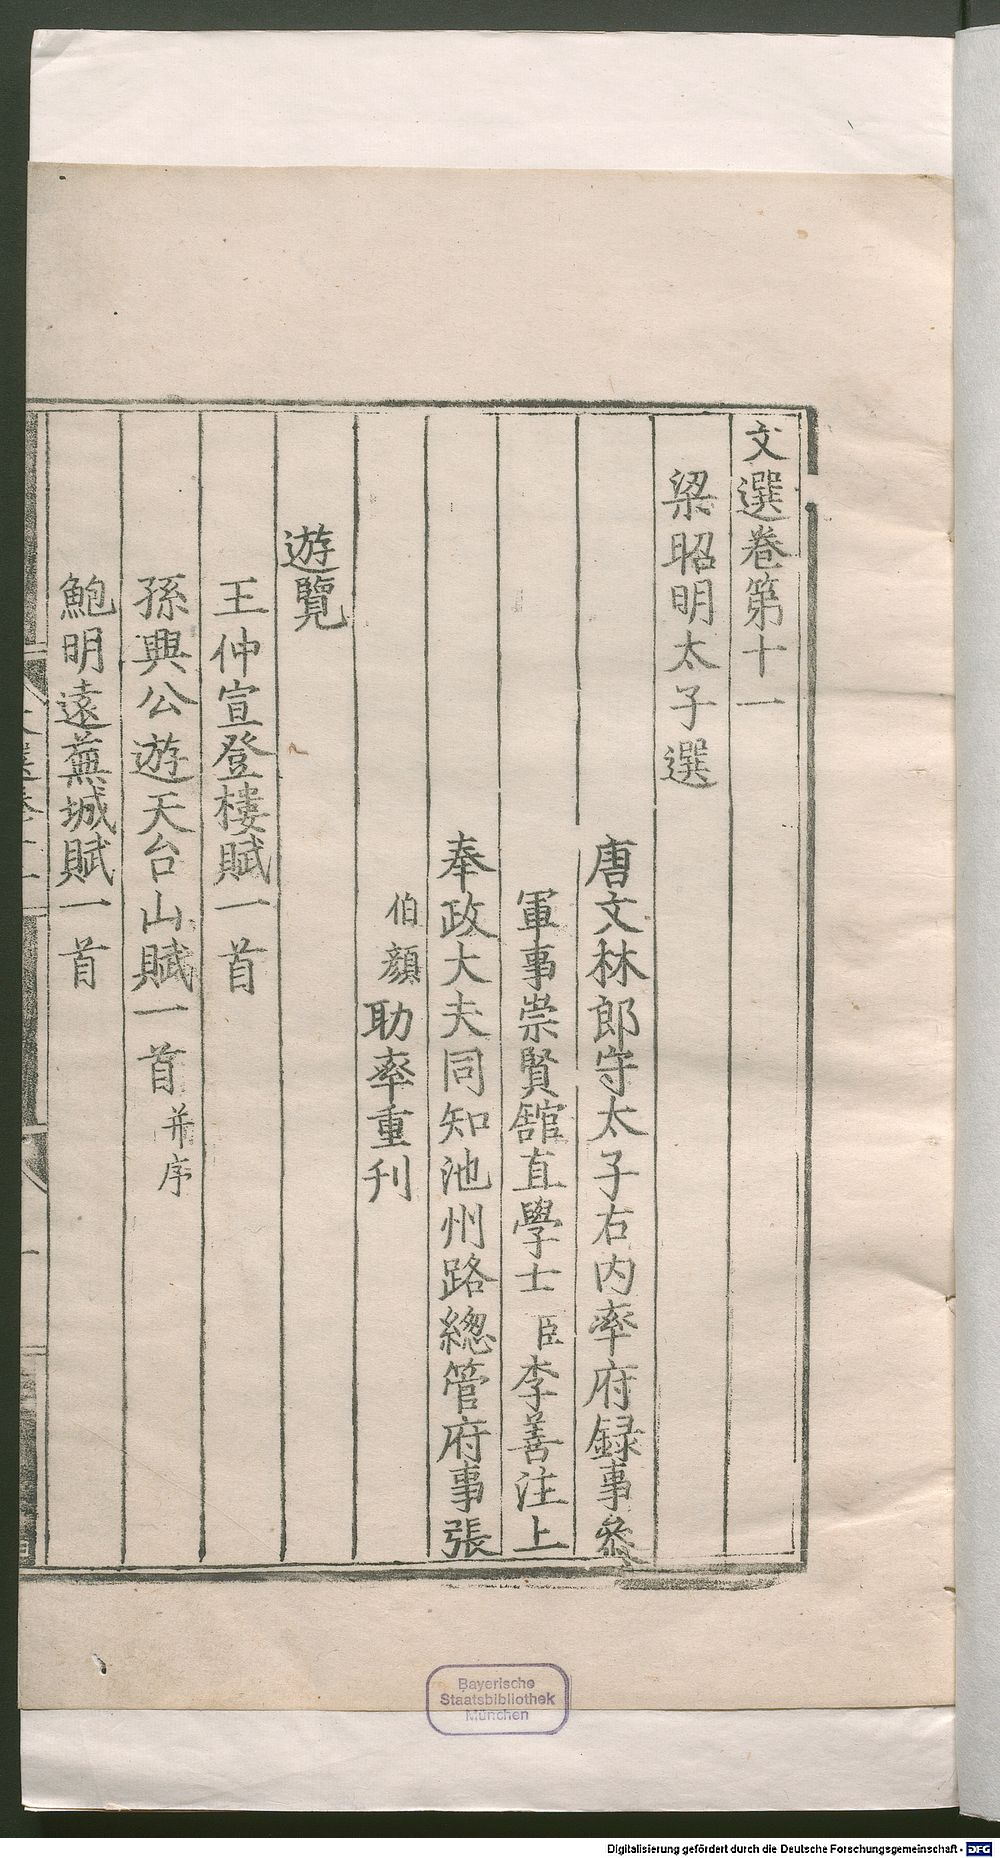 文選卷第十一
梁昭明太子選
唐文林郎守太子右內率府録事參
軍事崇賢舘直學士臣李善注上
奉政大夫同知池州路總管府事張
伯顔助率重刊
遊覽
王仲宣登樓賦一首
孫興公遊天台山賦一首并序
鮑明遠蕪城賦一首
Bayerische
Staatsbibliothek
München
Digitalisierung gefördert durch die Deutsche Forschungsgemeinschaft - DFG